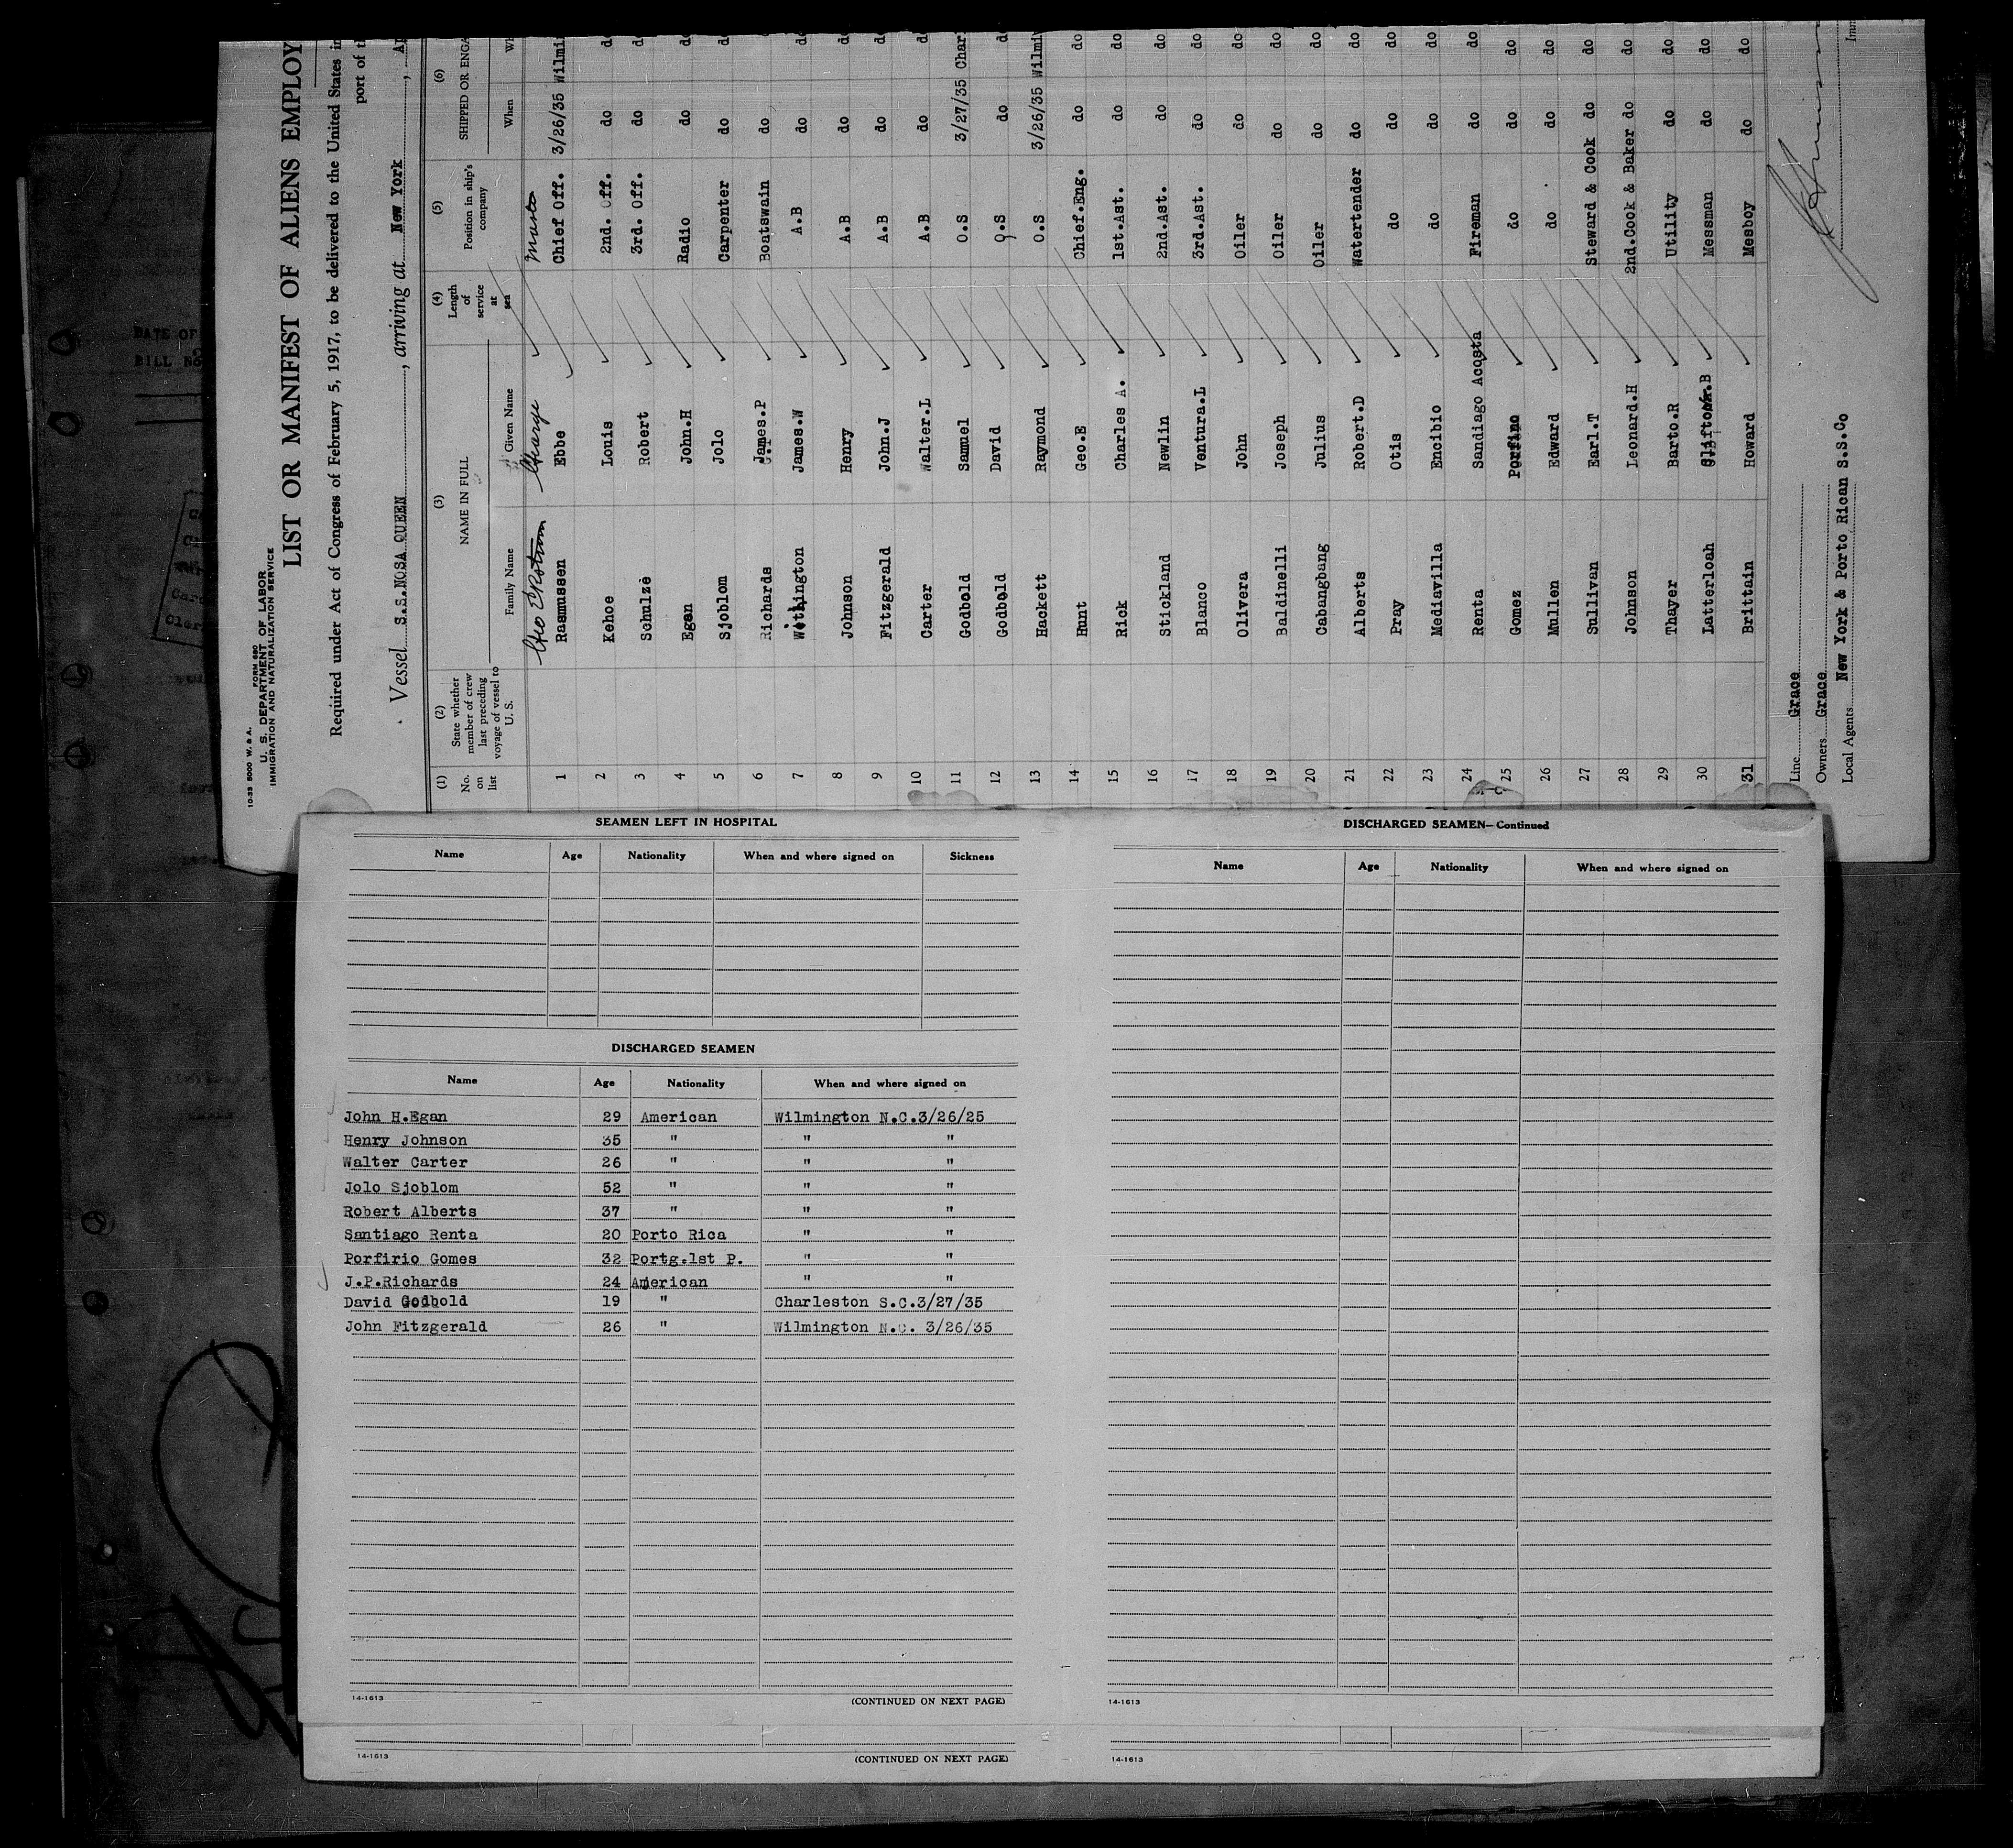 10-33 5000 W. & A.
FORM 680
U. S. DEPARTMENT OF LABOR
IMMIGRATION AND NATURALIZATION SERVICE
LIST OR MANIFEST OF ALIENS EMPLOY
Required under Act of Congress of February 5, 1917, to be delivered to the United States in
port of
Vessel S.S.NOSA QUEEN, arriving at New York, Ap
(1) (2) (3) (4) (5) (6)
No. on list State whether member of crew last preceding voyage of vessel to U. S. NAME IN FULL Length of service at sea Position in ship's company SHIPPED OR ENGA
Family Name Given Name When Wh
George Master
1 Rasmussen Ebbe Chief Off. 3/26/35 Wilmi
2 Kehoe Louis 2nd. Off. do do
3 Schulze Robert 3rd. Off. do do
4 Egan John.H Radio do do
5 Sjoblom Jolo Carpenter do do
6 Richards James.P Boatswain do do
7 Wethington James.W A.B do do
8 Johnson Henry A.B do do
9 Fitzgerald John.J A.B do do
10 Carter Walter.L A.B do do
11 Godbold Samuel O.S 3/27/35 Char
12 Godbold David O.S do do
13 Hackett Raymond O.S 3/26/35 Wilmi
14 Hunt Geo.E Chief.Eng. do do
15 Rick Charles A. 1st.Ast. do do
16 Stickland Newlin 2nd.Ast. do do
17 Blanco Ventura.L 3rd.Ast. do do
18 Olivera John Oiler do do
19 Baldinelli Joseph Oiler do do
20 Cabangbang Julius Oiler do do
21 Alberts Robert.D Watertender do do
22 Pray Otis do do do
23 Mediavilla Encibio do do do
24 Renta Sandiago Acosta Fireman do do
25 Gomez Porfino do do do
26 Mullen Edward do do do
27 Sullivan Earl.T Steward & Cook do do
28 Johnson Leonard.H 2nd.Cook & Baker do do
29 Thayer Barto.R Utility do do
30 Latterloah Clifton.B Messman do do
31 Brittain Howard Mesboy do do
Line Grace
Owners Grace
Local Agents New York & Porto Rican S.S.Co
DATE OF
BILL No
SEAMEN LEFT IN HOSPITAL
Name Age Nationality When and where signed on Sickness
DISCHARGED SEAMEN
Name Age Nationality When and where signed on
John H.Egan 29 American Wilmington N.C.3/26/25
Henry Johnson 35 " " "
Walter Carter 26 " " "
Jolo Sjoblom 52 " " "
Robert Alberts 37 " " "
Santiago Renta 20 Porto Rica " "
Porfirio Gomes 32 Portg.1st P. " "
J.P.Richards 24 American " "
David Godbold 19 " Charleston S.C.3/27/35
John Fitzgerald 26 " Wilmington N.C. 3/26/35
14-1613 (CONTINUED ON NEXT PAGE)
14-1613 (CONTINUED ON NEXT PAGE)
DISCHARGED SEAMEN—Continued
Name Age Nationality When and where signed on
14-1613
14-1613